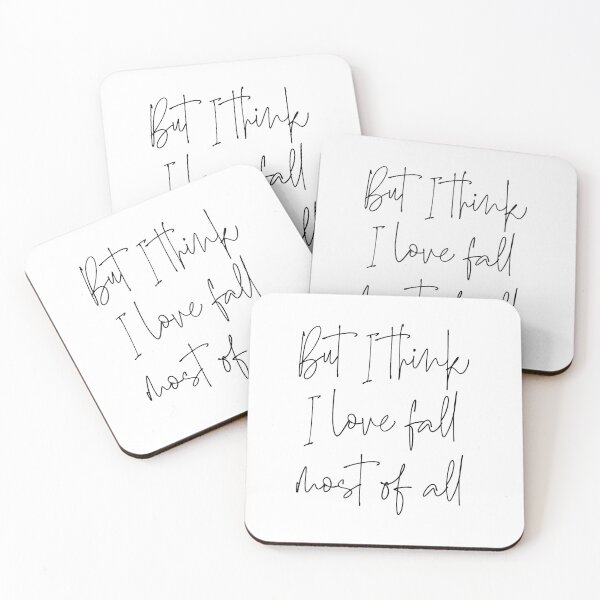 But I think
I love fall
But I think
I love fall
But I think
I love fall
most of
But I think
I love fall
most of all